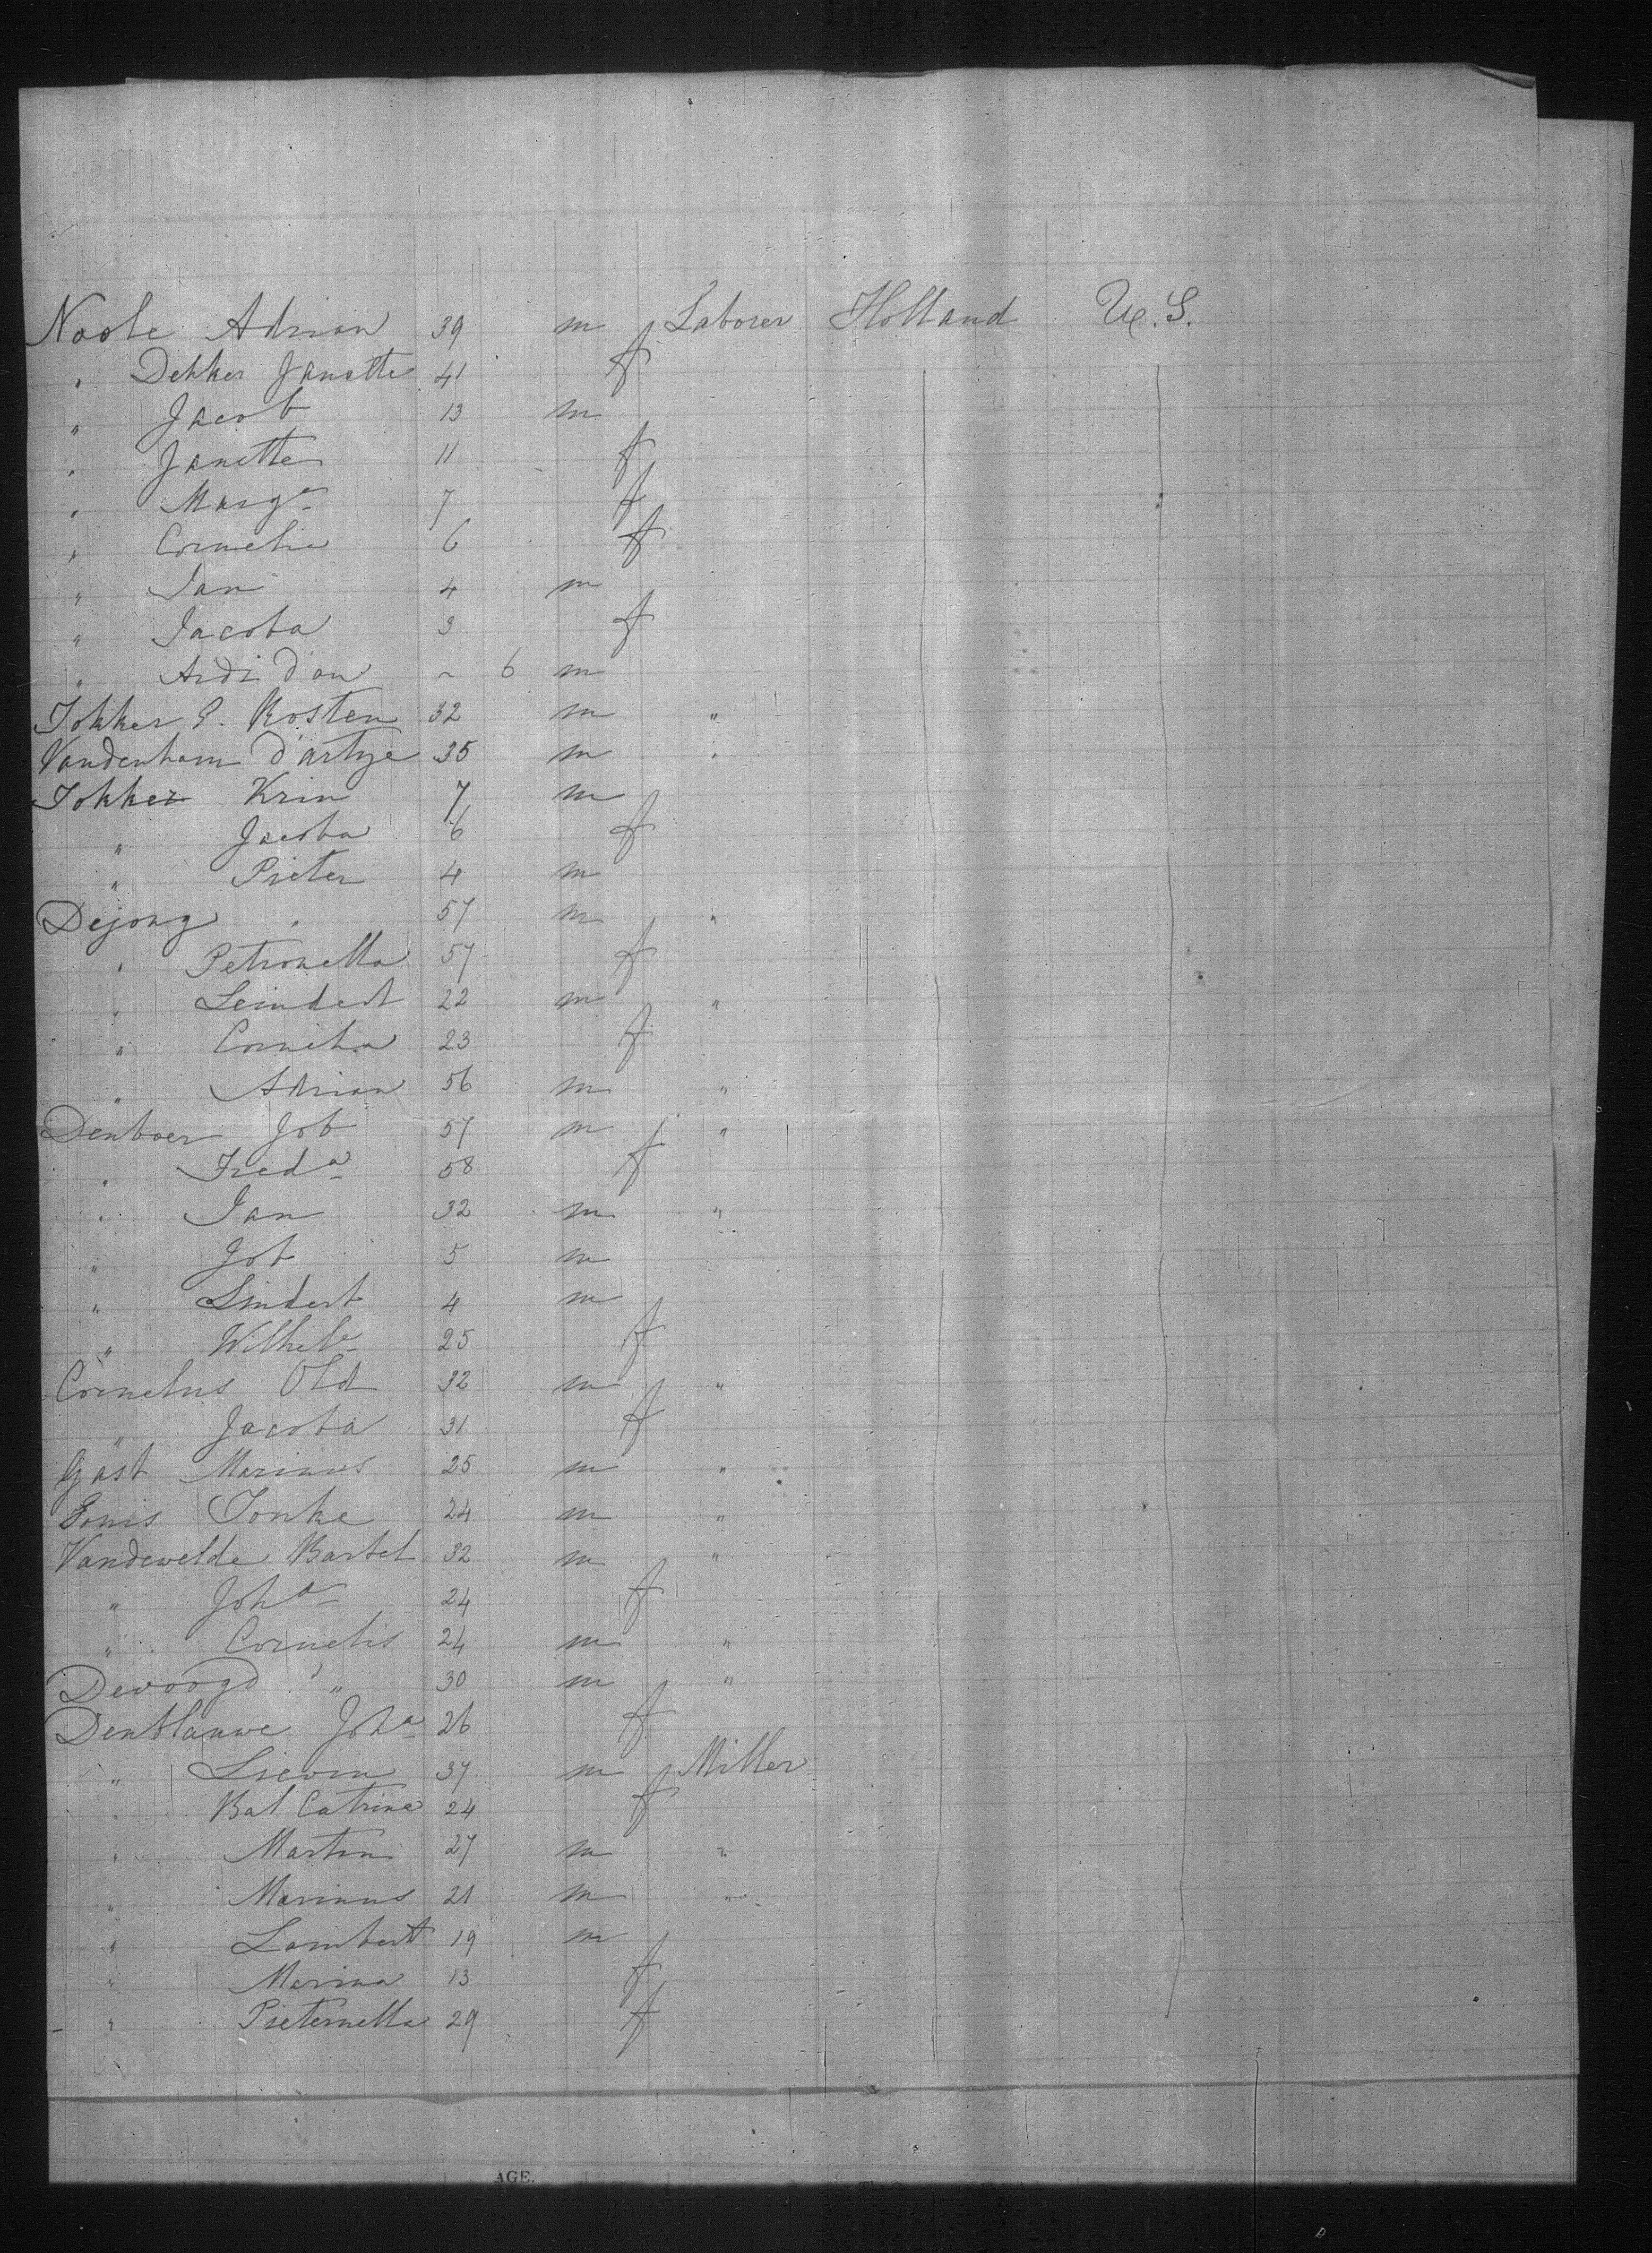 Noole Adrian 39 m Laborer Holland U.S.
" Dekker Janette 41 f
" Jacob 13 m
" Janette 11 f
" Marga 7 f
" Cornelia 6 f
" Jan 4 m
" Jacoba 3 f
" ~ 6 m
Tokker P. Kosten 32 m "
Vandenham d'artye 35 m "
Tokker Krin 7 m
" Jacoba 6 f
" Pieter 4 m
Dejong " 57 m "
" Petronella 57 f
" Leindert 22 m "
" Cornelia 23 f
" Adrian 56 m "
Denboer Job 57 m "
" Freda 58 f
" Jan 32 m "
" Job 5 m
" Lindert 4 m
" Wilhela 25 f
Cornelus Old 32 m "
" Jacoba 31 f
Gast Marinus 25 m "
Tonke 24 m "
Vandewelde Bartel 32 m "
" Joha 24 f
" Cornelis 24 m "
Devoogd " 30 m "
Denblauwe Joha 26 f
" Lievin 37 m Miller
" Bal Catrina 24 f
" Martin 27 m "
" Marinus 21 m "
" Lambert 19 m
" Marina 13 f
" Pieternella 29 f
AGE.